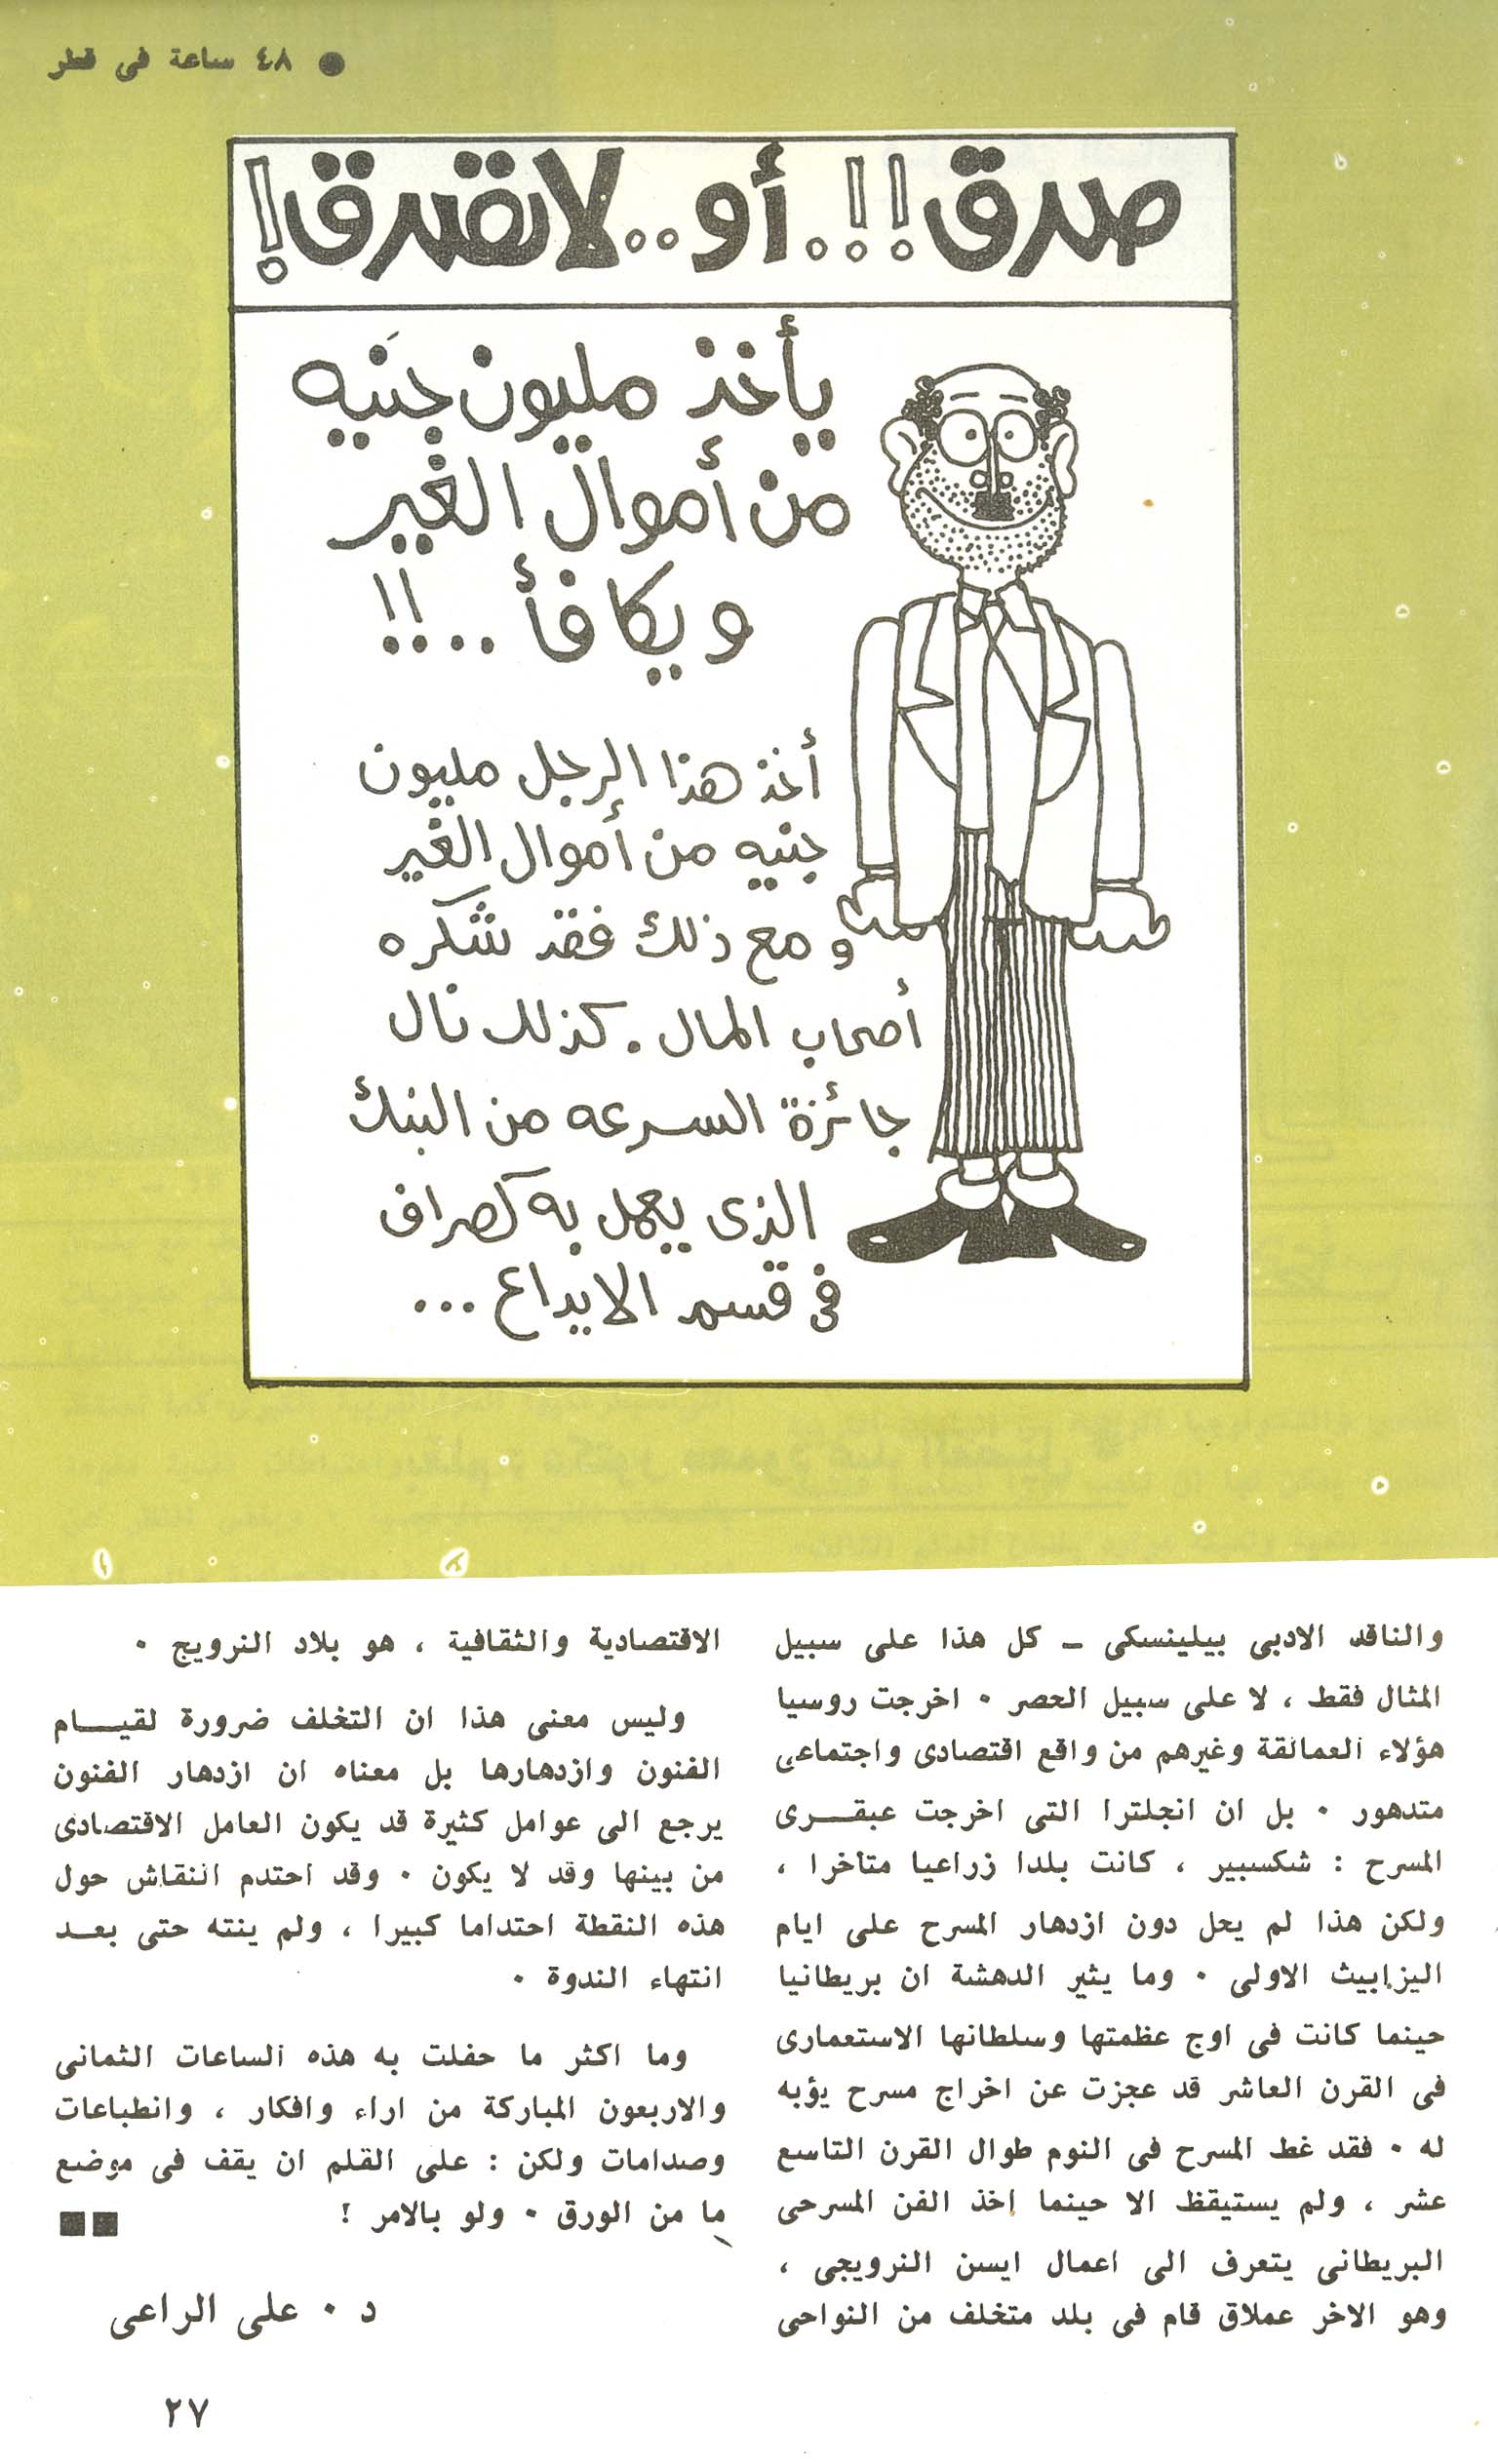 ● ٤٨ ساعة فى قطر
صدق!!.أو..لاتصدق!
يأخذ مليون جنَيه
من أموال الغير
ويكافأ..!!
أخذ هذا الرجل مليون
جنيه من أموال الغير
ومع ذلك فقد شكره
أصحاب المال . كذلك نال
جائزة السرعه من البنك
الذى يعمل به كصراف
فى قسم الايداع ...
والناقد الادبى بيلينسكى ــ كل هذا على سبيل
المثال فقط ، لا على سبيل الحصر ٠ اخرجت روسيا
هؤلاء العمالقة وغيرهم من واقع اقتصادى واجتماعى
متدهور ٠ بل ان انجلترا التى اخرجت عبقـــرى
المسرح : شكسبير ، كانت بلدا زراعيا متاخرا ،
ولكن هذا لم يحل دون ازدهار المسرح على ايام
اليزابيث الاولى ٠ وما يثير الدهشة ان بريطانيا
حينما كانت فى اوج عظمتها وسلطانها الاستعمارى
فى القرن العاشر قد عجزت عن اخراج مسرح يؤبه
له ٠ فقد غط المسرح فى النوم طوال القرن التاسع
عشر ، ولم يستيقظ الا حينما اخذ الفن المسرحى
البريطانى يتعرف الى اعمال ابسن النرويجى ،
وهو الاخر عملاق قام فى بلد متخلف من النواحى
الاقتصادية والثقافية ، هو بلاد النرويج ٠
وليس معنى هذا ان التخلف ضرورة لقيـــام
الفنون وازدهارها بل معناه ان ازدهار الفنون
يرجع الى عوامل كثيرة قد يكون العامل الاقتصادى
من بينها وقد لا يكون ٠ وقد احتدم النقاش حول
هذه النقطة احتداما كبيرا ، ولم ينته حتى بعــد
انتهاء الندوة ٠
وما اكثر ما حفلت به هذه الساعات الثمانى
والاربعون المباركة من اراء وافكار ، وانطباعات
وصدامات ولكن : على القلم ان يقف فى موضع
ما من الورق ٠ ولو بالامر !
د ٠ على الراعى
٢٧